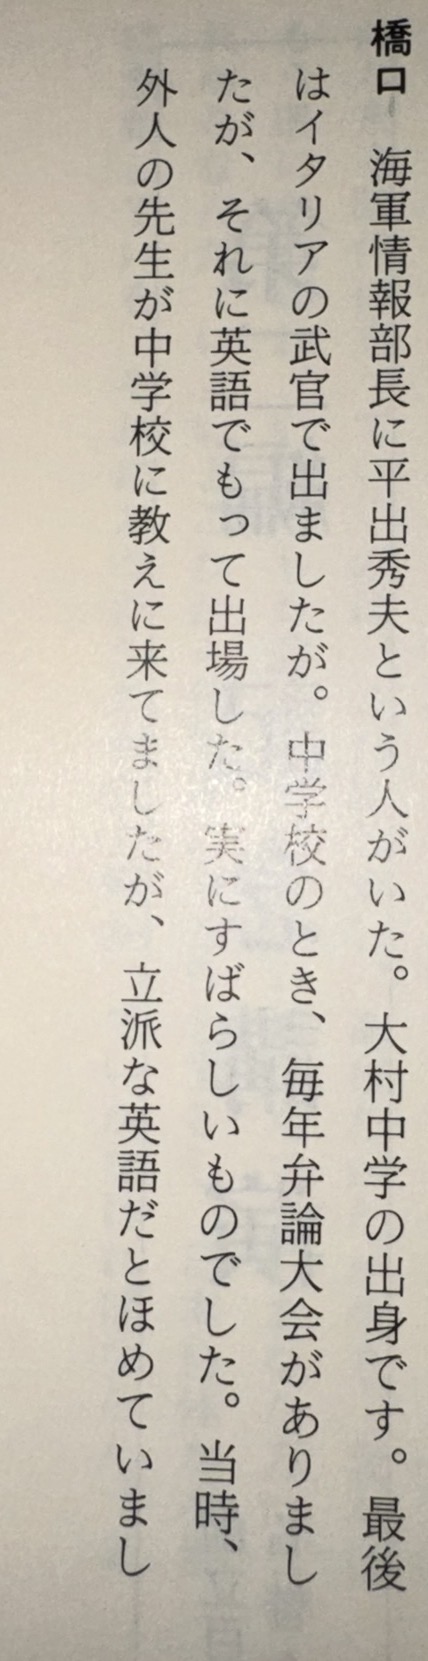 橋口　海軍情報部長に平出秀夫という人がいた。大村中学の出身です。最後
はイタリアの武官で出ましたが。中学校のとき、毎年弁論大会がありまし
たが、それに英語でもって出場した。実にすばらしいものでした。当時、
外人の先生が中学校に教えに来てましたが、立派な英語だとほめていまし